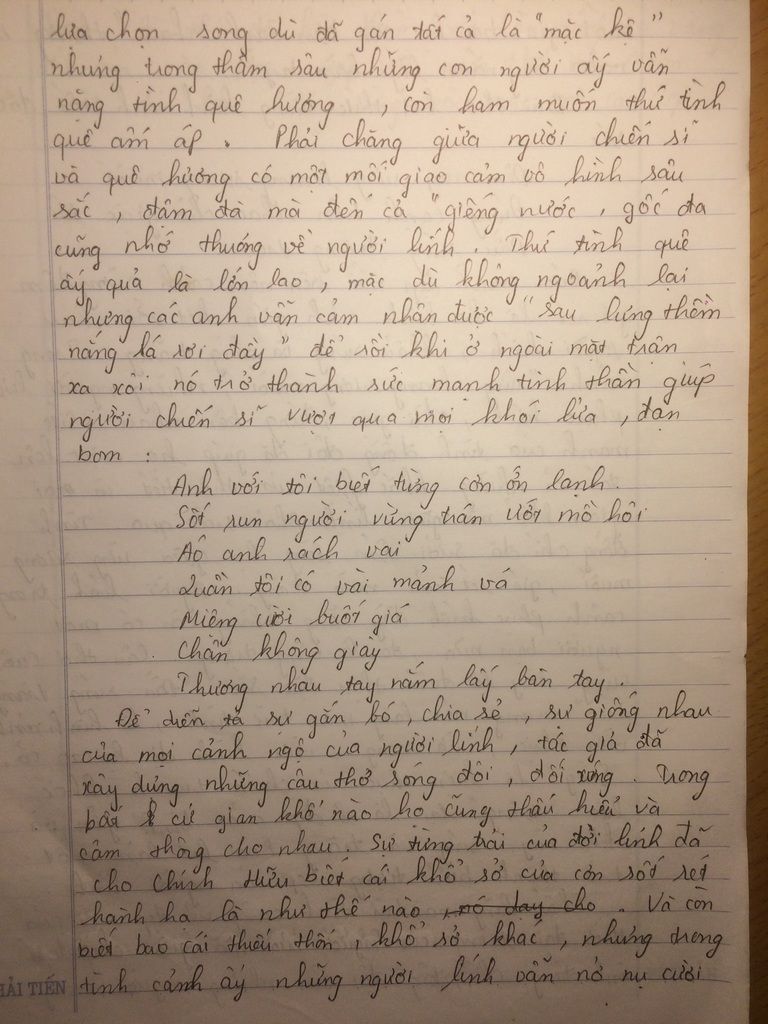 lựa chọn song dù đã gán tất cả là "mặc kệ"
nhưng trong thẳm sâu những con người ấy vẫn
nặng tình quê hương, còn ham muốn thứ tình
quê ấm áp. Phải chăng giữa người chiến sĩ
và quê hương có một mối giao cảm vô hình sâu
sắc, đậm đà mà đến cả "giếng nước, gốc đa
cũng nhớ thương về người lính. Thứ tình quê
ấy quả là lớn lao, mặc dù không ngoảnh lại
nhưng các anh vẫn cảm nhận được "sau lưng thềm
nắng lá rơi đầy" để rồi khi ở ngoài mặt trận
xa xôi nó trở thành sức mạnh tinh thần giúp
người chiến sĩ vượt qua mọi khói lửa, đạn
bom :
Anh với tôi biết từng cơn ớn lạnh.
Sốt run người vừng trán ướt mồ hôi
Aó anh rách vai
Quần tôi có vài mảnh vá
Miệng cười buốt giá
Chân không giày
Thương nhau tay nắm lấy bàn tay.
Để diễn tả sự gắn bó, chia sẻ, sự giống nhau
của mọi cảnh ngộ của người lính, tác giả đã
xây dựng những câu thơ sóng đôi, đối xứng. Trong
bất cứ gian khổ nào họ cũng thấu hiểu và
cảm thông cho nhau. Sự từng trải của đời lính đã
cho Chính Hữu biết cái khổ sở của cơn sốt rét
hành hạ là như thế nào, nó dạy cho. Và còn
biết bao cái thiếu thốn, khổ sở khác, nhưng trong
tình cảnh ấy những người lính vẫn nở nụ cười
HẢI TIẾN